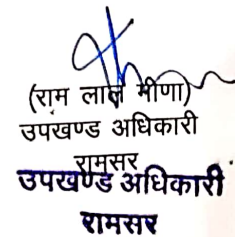 (राम लाल मीणा)
उपखण्ड अधिकारी
रामसर
उपखण्ड अधिकारी
रामसर